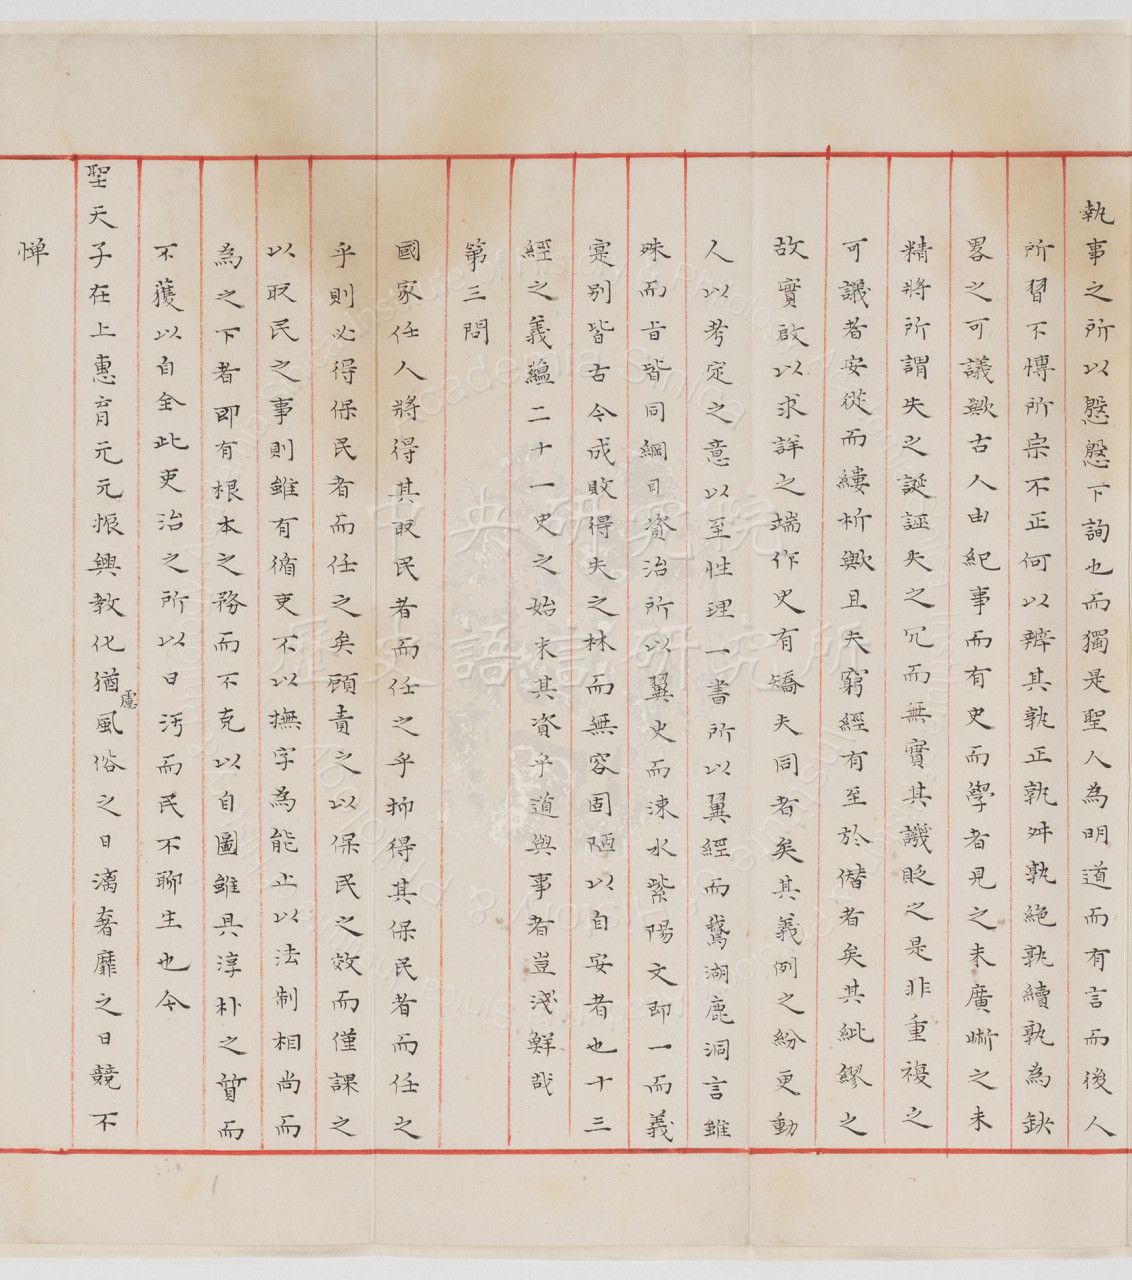 執事之所以慇慇下詢也而獨是聖人為明道而有言而後人
所習不愽所宗不正何以辨其孰正孰舛孰絶孰續孰為缺
畧之可議歟古人由紀事而有史而學者見之未廣晰之未
精將所謂失之誕誣失之冗而無實其譏貶之是非重複之
可議者安從而縷析歟且夫窮經有至於僭者矣其紕繆之
故實啟以求詳之端作史有矯夫同者矣其義例之紛更動
人以考定之意以至性理一書所以翼經而鵞湖鹿洞言雖
殊而旨皆同綱目資治所以翼史而涑水紫陽文即一而義
寔别皆古今成敗得失之林而無容固陋以自安者也十三
經之義蘊二十一史之始末其資乎道與事者豈淺鮮哉
第三問
國家任人將得其取民者而任之乎抑得其保民者而任之
乎則必得保民者而任之矣顧責之以保民之效而僅課之
以取民之事則雖有循吏不以撫字為能止以法制相尚而
為之下者即有根本之務而不克以自圖雖具淳朴之質而
不獲以自全此吏治之所以日污而民不聊生也今
聖天子在上惠育元元振興教化猶慮風俗之日漓奢靡之日競不
惮
中央研究院
歷史語言研究所